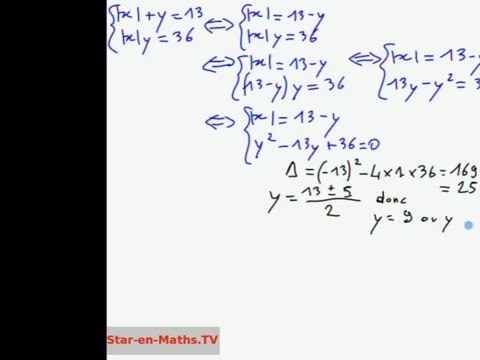 {|x|+y=13 ⟺ {|x|=13-y
|x|y=36 |x|y=36
⟺ {|x|=13-y ⟺ {|x|=13-y
(13-y)y=36 13y-y²=3
⟺ {|x|=13-y
y²-13y+36=0
Δ=(-13)²-4×1×36=169
=25
y=(13±5)/2 donc
y=9 ou y
Star-en-Maths.TV